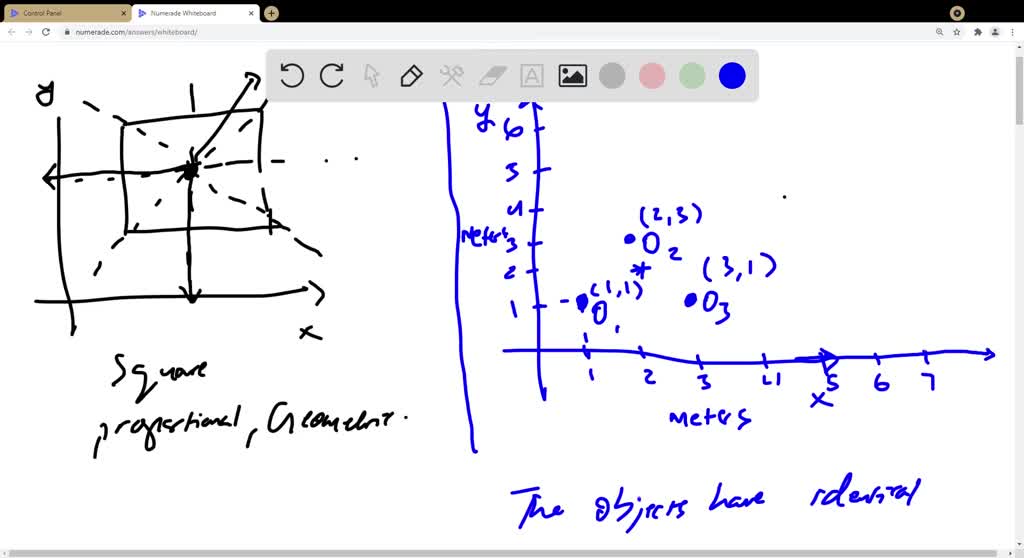 Control Panel × Numerade Whiteboard × +
numerade.com/answers/whiteboard/
A
y
x
Square
, proportional, Geometric.
y
6
5
4
Meters 3
2
1
(2,3)
O2
(3,1)
O3
(1,1)
O1
1 2 3 4 5 6 7
x
meters
The objects have identical